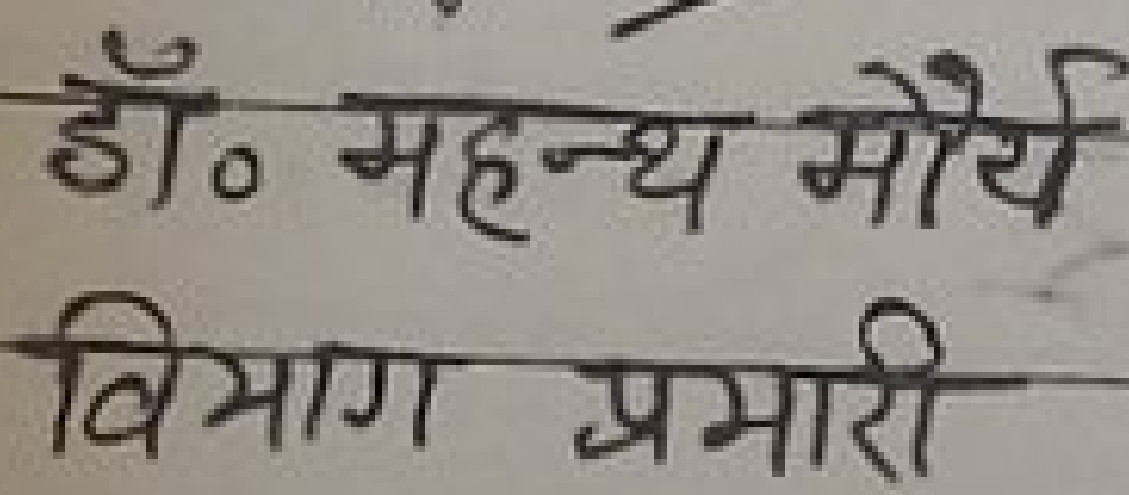 डॉ० महन्थ मौर्य
विभाग प्रभारी